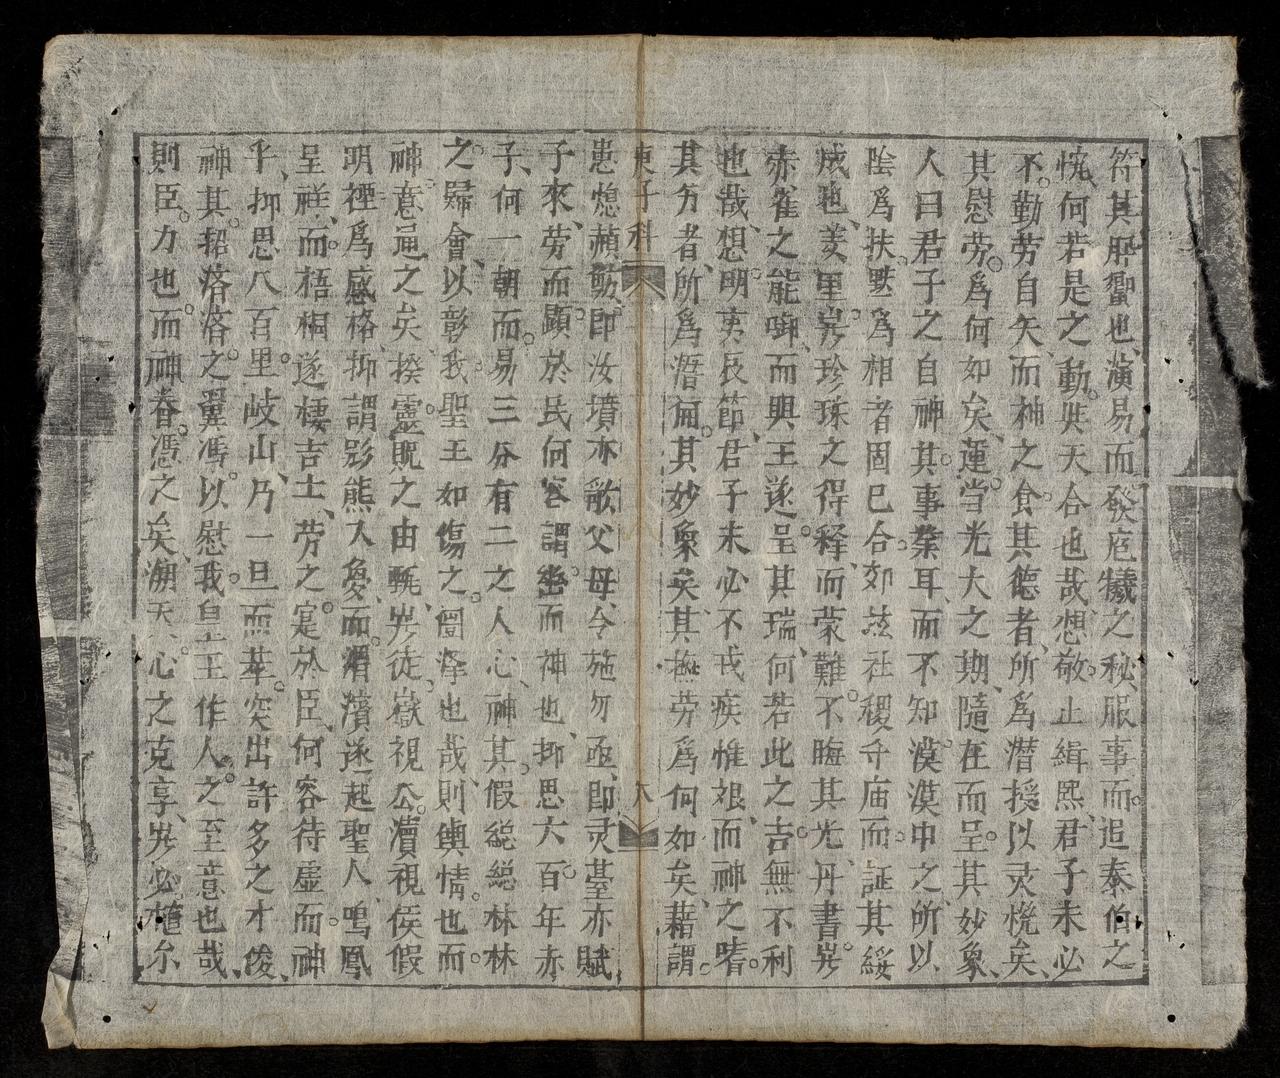 符其肸蠁也演易而發庖犧之秘服事而追泰伯之
忱何若是之動與天合也哉想敬止緝熙君子未必
不勤劳自矢而神之食其德者所爲潜授以灵機矣
其慰劳爲何如矣運當光大之期隨在而呈其妙象
人曰君子之自神其事業耳而不知漠漠中之所以
陰爲扶黙爲相者固已合郊兹社稷寺庙而証其綏
成也羑里兴珍珠之得释而蒙難不晦其光丹書兴
赤雀之能啣而興王遂呈其瑞何若此之吉無不利
也哉想明夷艮節君子未必不戎疾惟艱而神之嗜
其芳者所爲潛何其妙象矣其撫劳爲何如矣藉謂
庚子科
八
恚熄蘋動即汝墳亦歌父母令施勿亟即灵䑓亦賦
子來劳而顕於民何容謂幽而神也抑思六百年赤
子何一朝而易三分有二之人心神其假総総林林
之歸會以彰我聖王如傷之闓澤也哉則輿情也而
神意通之矣揆靈貺之由甄兴徒嶽視公瀆視侯假
明禋爲感格抑謂影熊入夐而渭濱遂起聖人鳴鳳
呈祥而梧桐遂棲吉士劳之寔於臣何容待虛而神
乎抑思八百里岐山乃一旦而萃突出許多之才俊
神其招落落之翼馮以慰我皇王作人之至意也哉
則臣力也而神眷憑之矣溯天心之克享兴必薀尒